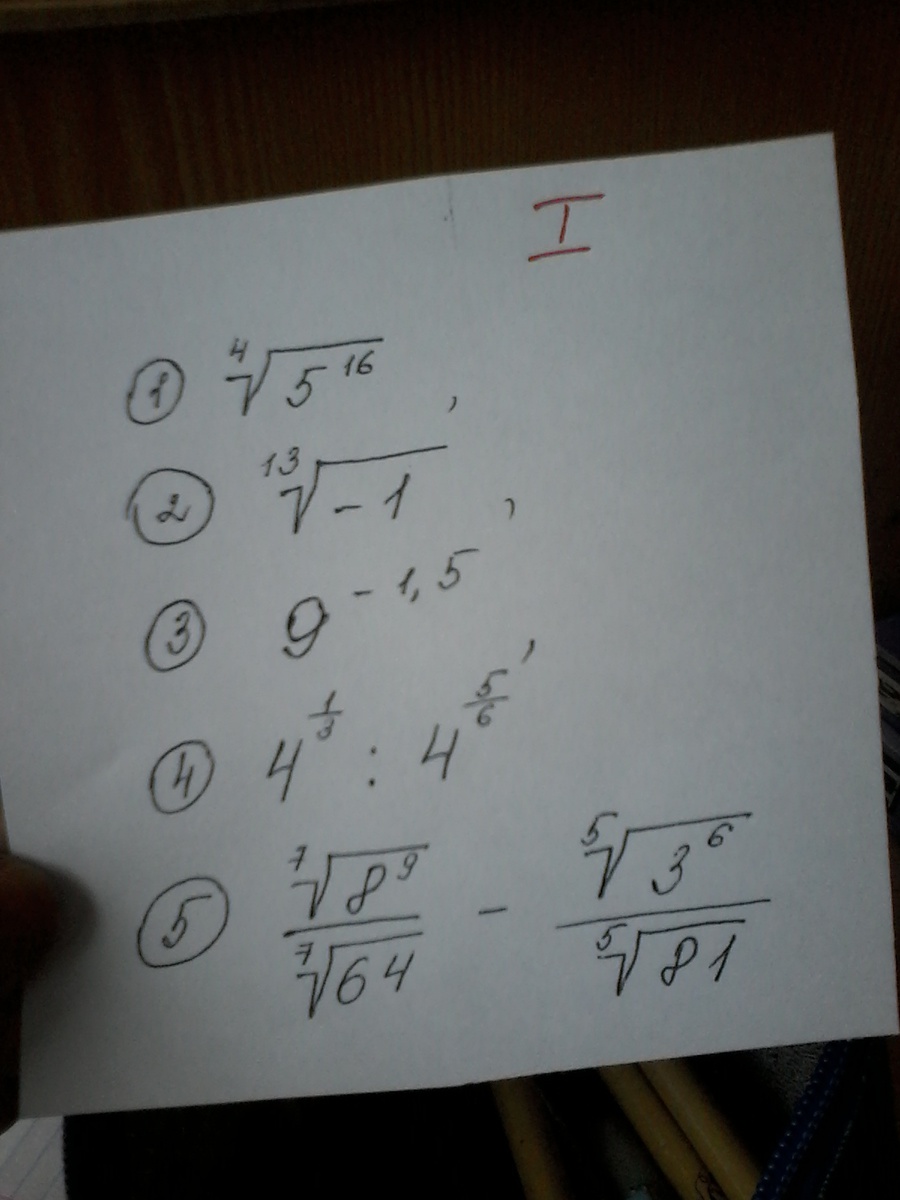 I
① ⁴√5¹⁶,
② ¹³√-1,
③ 9^-1,5,
④ 4^1/3 : 4^5/6
⑤ ⁷√8⁹/⁷√64 - ⁵√3⁶/⁵√81